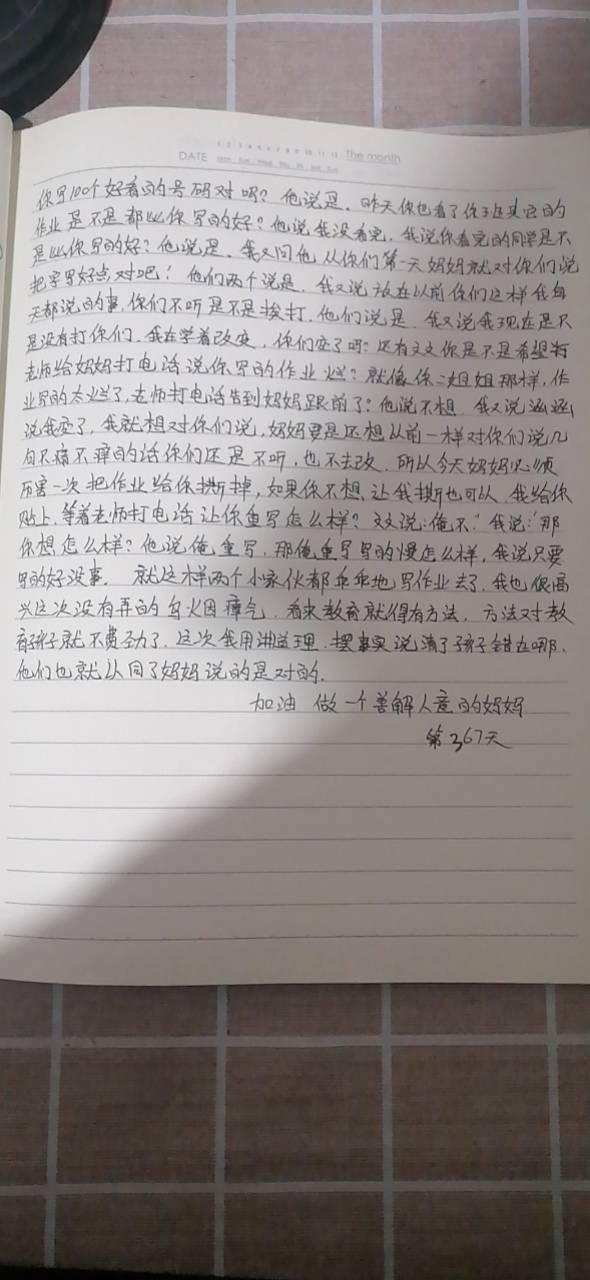 DATE The month
你写100个好看的号码对吗？他说是．昨天你也看了你班其它的
作业是不是都比你写的好？他说我没看完，我说你看完的同学是不
是比你写的好？他说是．我又问他从你们第一天妈妈就对你们说
把字写好点对吧！他们两个说是．我又说放在以前你们这样我每
天都说的事，你们不听是不是挨打．他们说是．我又说我现在是不
是没有打你们，我在学着改变，你们变了吗？还有文文你是不是希望
老师给妈妈打电话说你写的作业烂？就像你二姐姐那样，作
业写的太烂了，老师打电话告到妈妈跟前了？他说不想．我又说
说我变了，我就想对你们说，妈妈要是还想从前一样对你们说几
句不痛不痒的话你们还是不听，也不去改．所以今天妈妈必须
厉害一次把作业给你撕掉，如果你不想让我撕也可以．我给你
贴上．等着老师打电话让你重写怎么样？文文说：俺不．"我说："那
你想怎么样？他说俺重写．那俺重写写的慢怎么样，我说只要
写的好没事．就这样两个小家伙都乖乖地写作业去了．我也很高
兴这次没有再的乌火因瘴气．看来教育就得有方法，方法对教
育孩子就不费劲了．这次我用讲道理．摆事实说清了孩子错在哪．
他们也就认同了妈妈说的是对的．
加油 做一个善解人意的妈妈
第367天